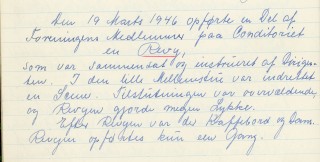 Den 19 Marts 1946 opførte en Del af
Foreningens Medlemmer paa Conditoriet
en Revy,
som var sammensat og instrueret af Dirigen-
ten. I den lille Mellemstue var indrettet
en Scene. Tilslutningen var overvældende,
og Revyen gjorde megen Lykke.
Efter Revyen var der Kaffebord og Dans.
Revyen opførtes kun een Gang.